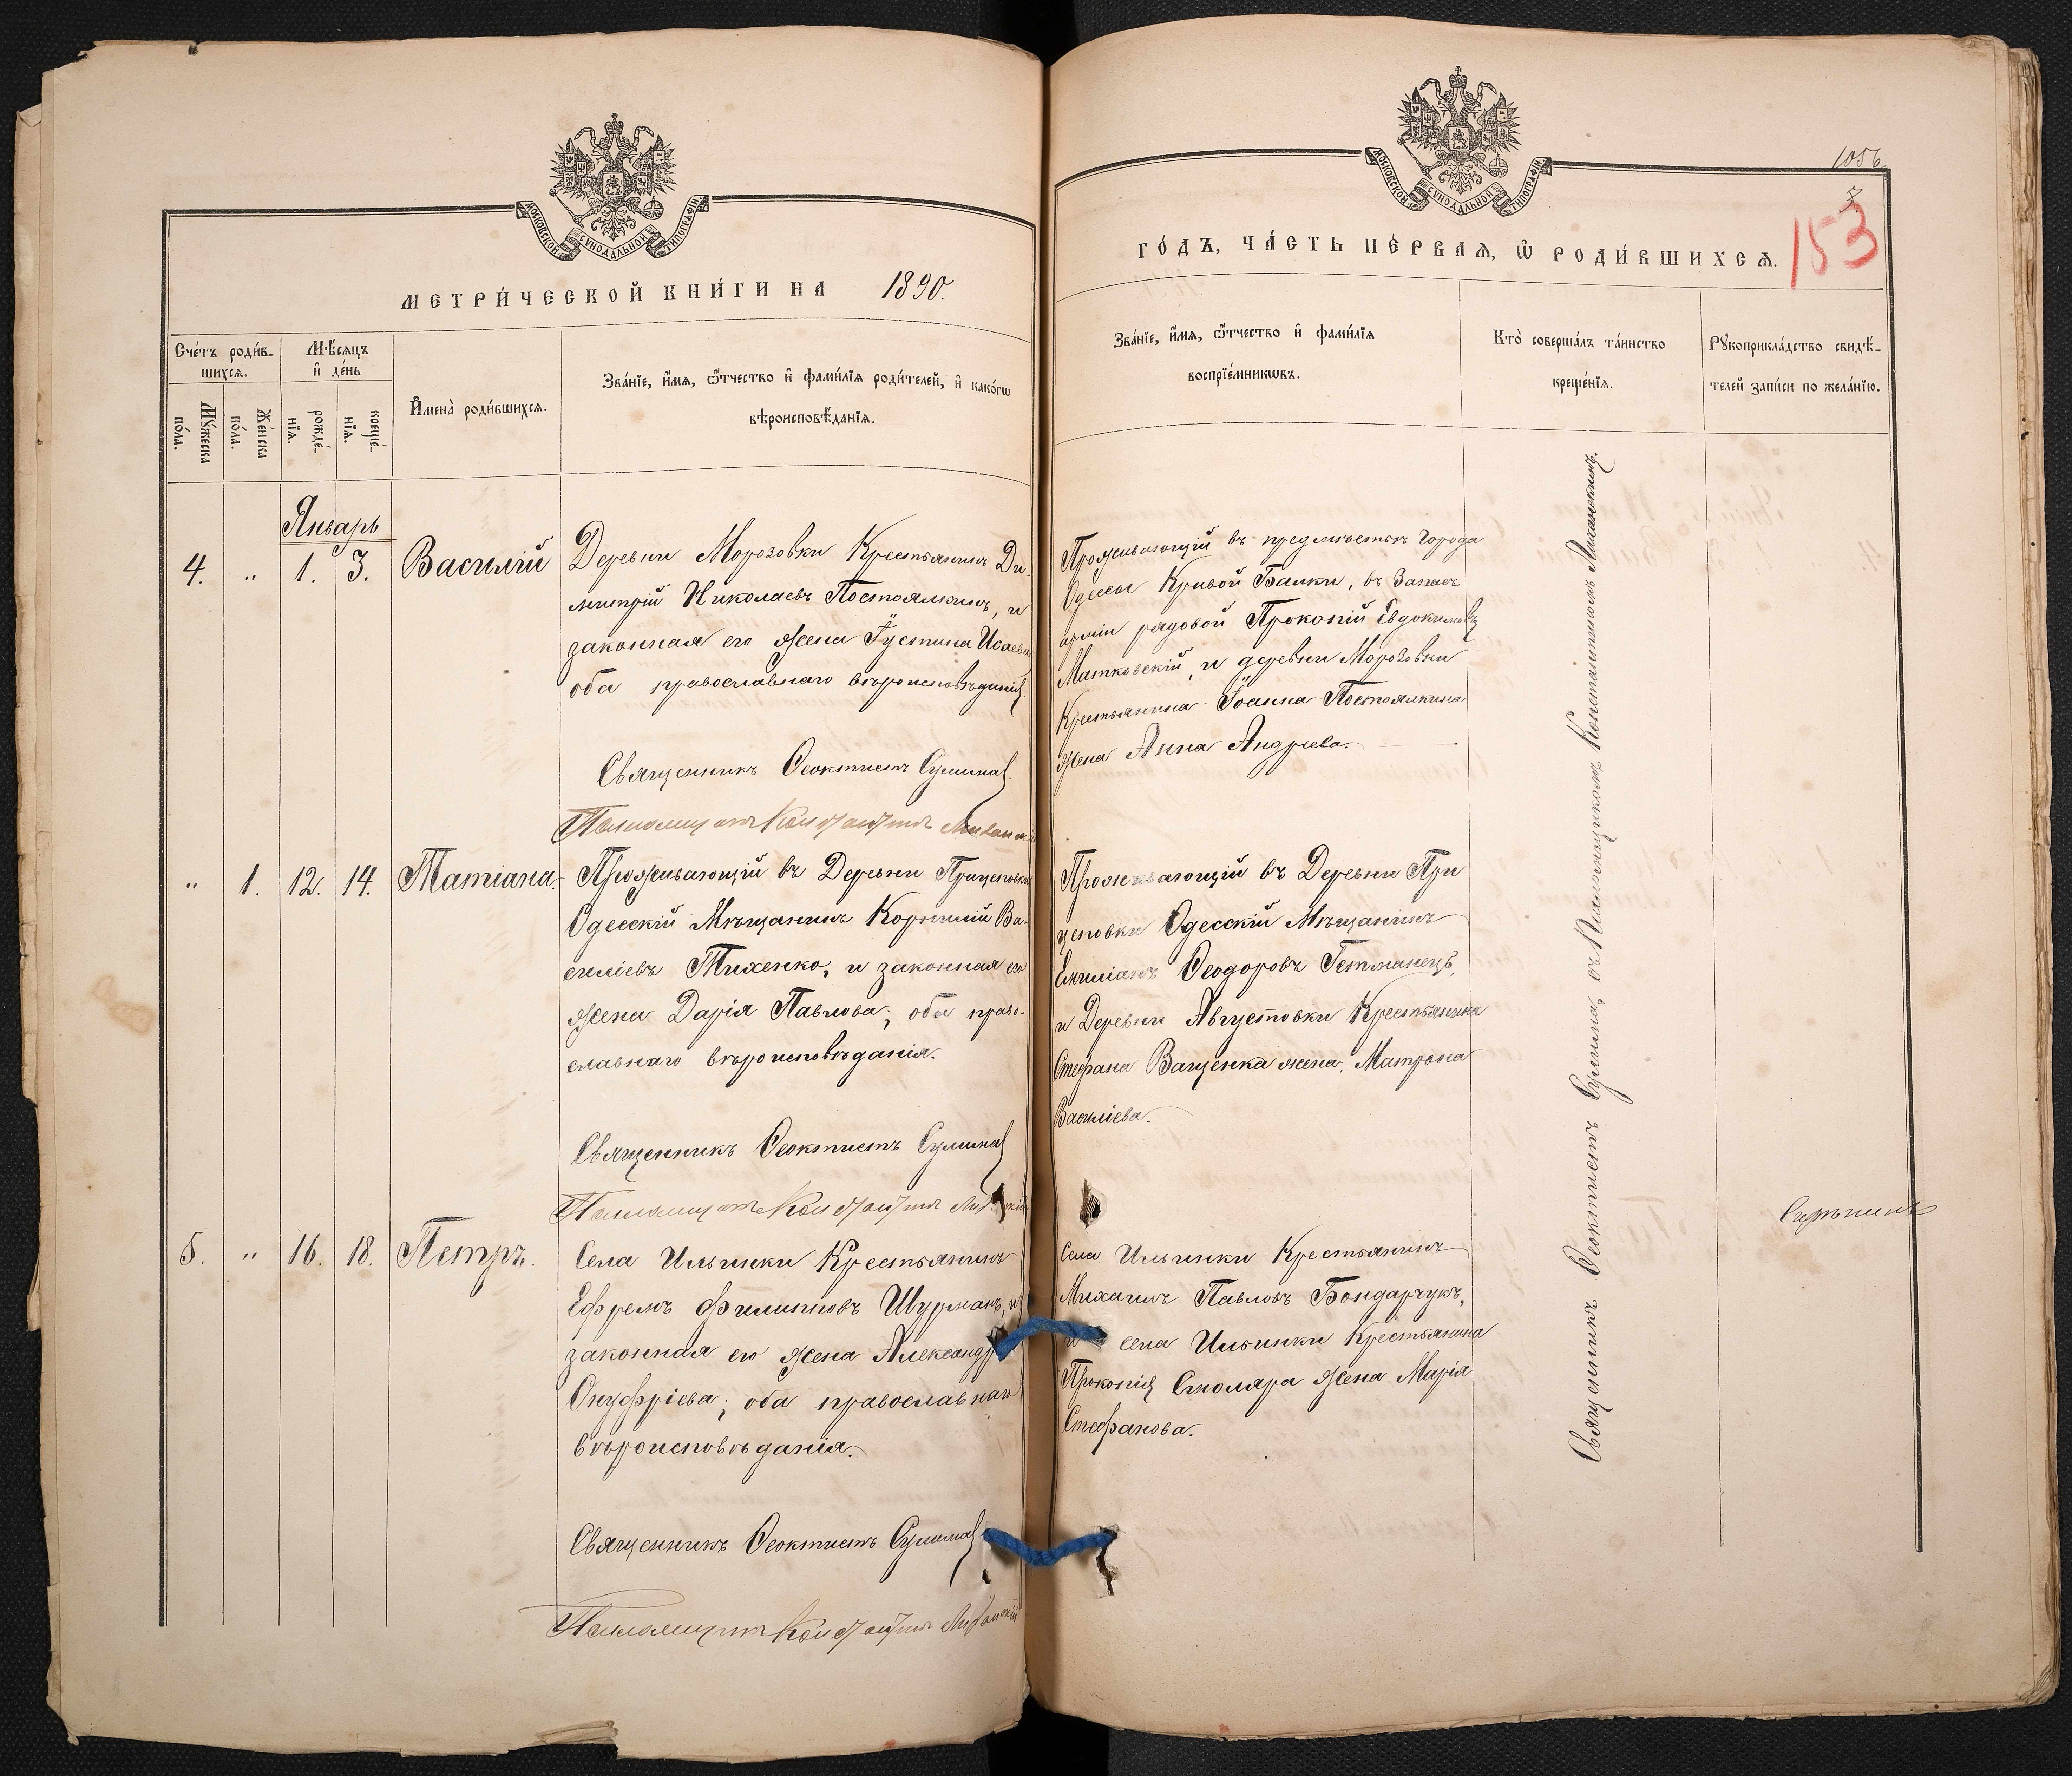 МОСКОВСКОЙ СѴНОДАЛЬНОЙ ТИПОГРАФІИ
МЕТРИ́ЧЕСКОЙ КНИ́ГИ НА 1890.
Сче́тъ роди́в-
шихся.
Мѣ́сяцъ
и҆ де́нь
Мꙋ́жеска
по́ла.
Же́нска
по́ла.
рожде́-
нїѧ.
креще́-
нїѧ.
И҆мена̀ роди́вшихсѧ.
Зва́нїе, и҆́мѧ, ѻ҆́тчество и҆ фами́лїѧ роди́телей, и҆ како́гѡ
вѣроисповѣ́данїѧ.
Январь
4. " 1. 3. Василій
Деревни Морозовки Крестьянинъ Ди-
митрій Николаевъ Постоялкинъ, и
законная его жена Іустина Исаева
оба православнаго вѣроисповѣданія
Священникъ Ѳеоктистъ Сулима
Псаломщикъ Константинъ
" 1. 12. 14. Татіана
Проживающій въ Деревни Прицеповки
Одесскій Мѣщанинъ Корнилій Ва-
силіевъ Тихенко, и законная его
жена Дарія Павлова; оба право-
славнаго вѣроисповѣданія.
Священникъ Ѳеоктистъ Сулима
Псаломщикъ Константинъ
5. " 16. 18. Петръ.
Села Ильинки Крестьянинъ
Ефремъ Филипповъ Шурманъ, и
законная его жена Александра
Онуфріева; оба православнаго
вѣроисповѣданія.
Священникъ Ѳеоктистъ Сулима
Псаломщикъ Константинъ
МОСКОВСКОЙ СѴНОДАЛЬНОЙ ТИПОГРАФІИ
1056
3
153
ГО́ДЪ, ЧА́СТЬ ПЕ́РВАѦ, Ѿ РОДИ́ВШИХСѦ.
Зва́нїе, и҆́мѧ, ѻ҆́тчество и҆ фами́лїѧ
воспрїе́мникѡвъ.
Кто̀ соверша́лъ та́инство
креще́нїѧ.
Рꙋкоприкла́дство свидѣ́-
телей запи́си по жела́нїю.
Проживающій въ предмѣстьи города
Одессы Кривой Балки, въ запасѣ
арміи рядовой Прокопій Евдокимовъ
Матковскій, и деревни Морозовки
Крестьянина Іоанна Постоялкина
жена Анна Андреева.
Проживающій въ Деревни При
цеповки Одесскій Мѣщанинъ
Емиліанъ Ѳеодоровъ Гетманецъ,
и Деревни Августовки Крестьянина
Стефана Ващенка жена, Матрона
Василіева.
Села Ильинки Крестьянинъ
Михаилъ Павловъ Бондарчукъ,
и села Ильинки Крестьянина
Прокопія Столяра жена Марія
Стефанова.
Священникъ Ѳеоктистъ Сулима, съ Псаломщикомъ Константиномъ